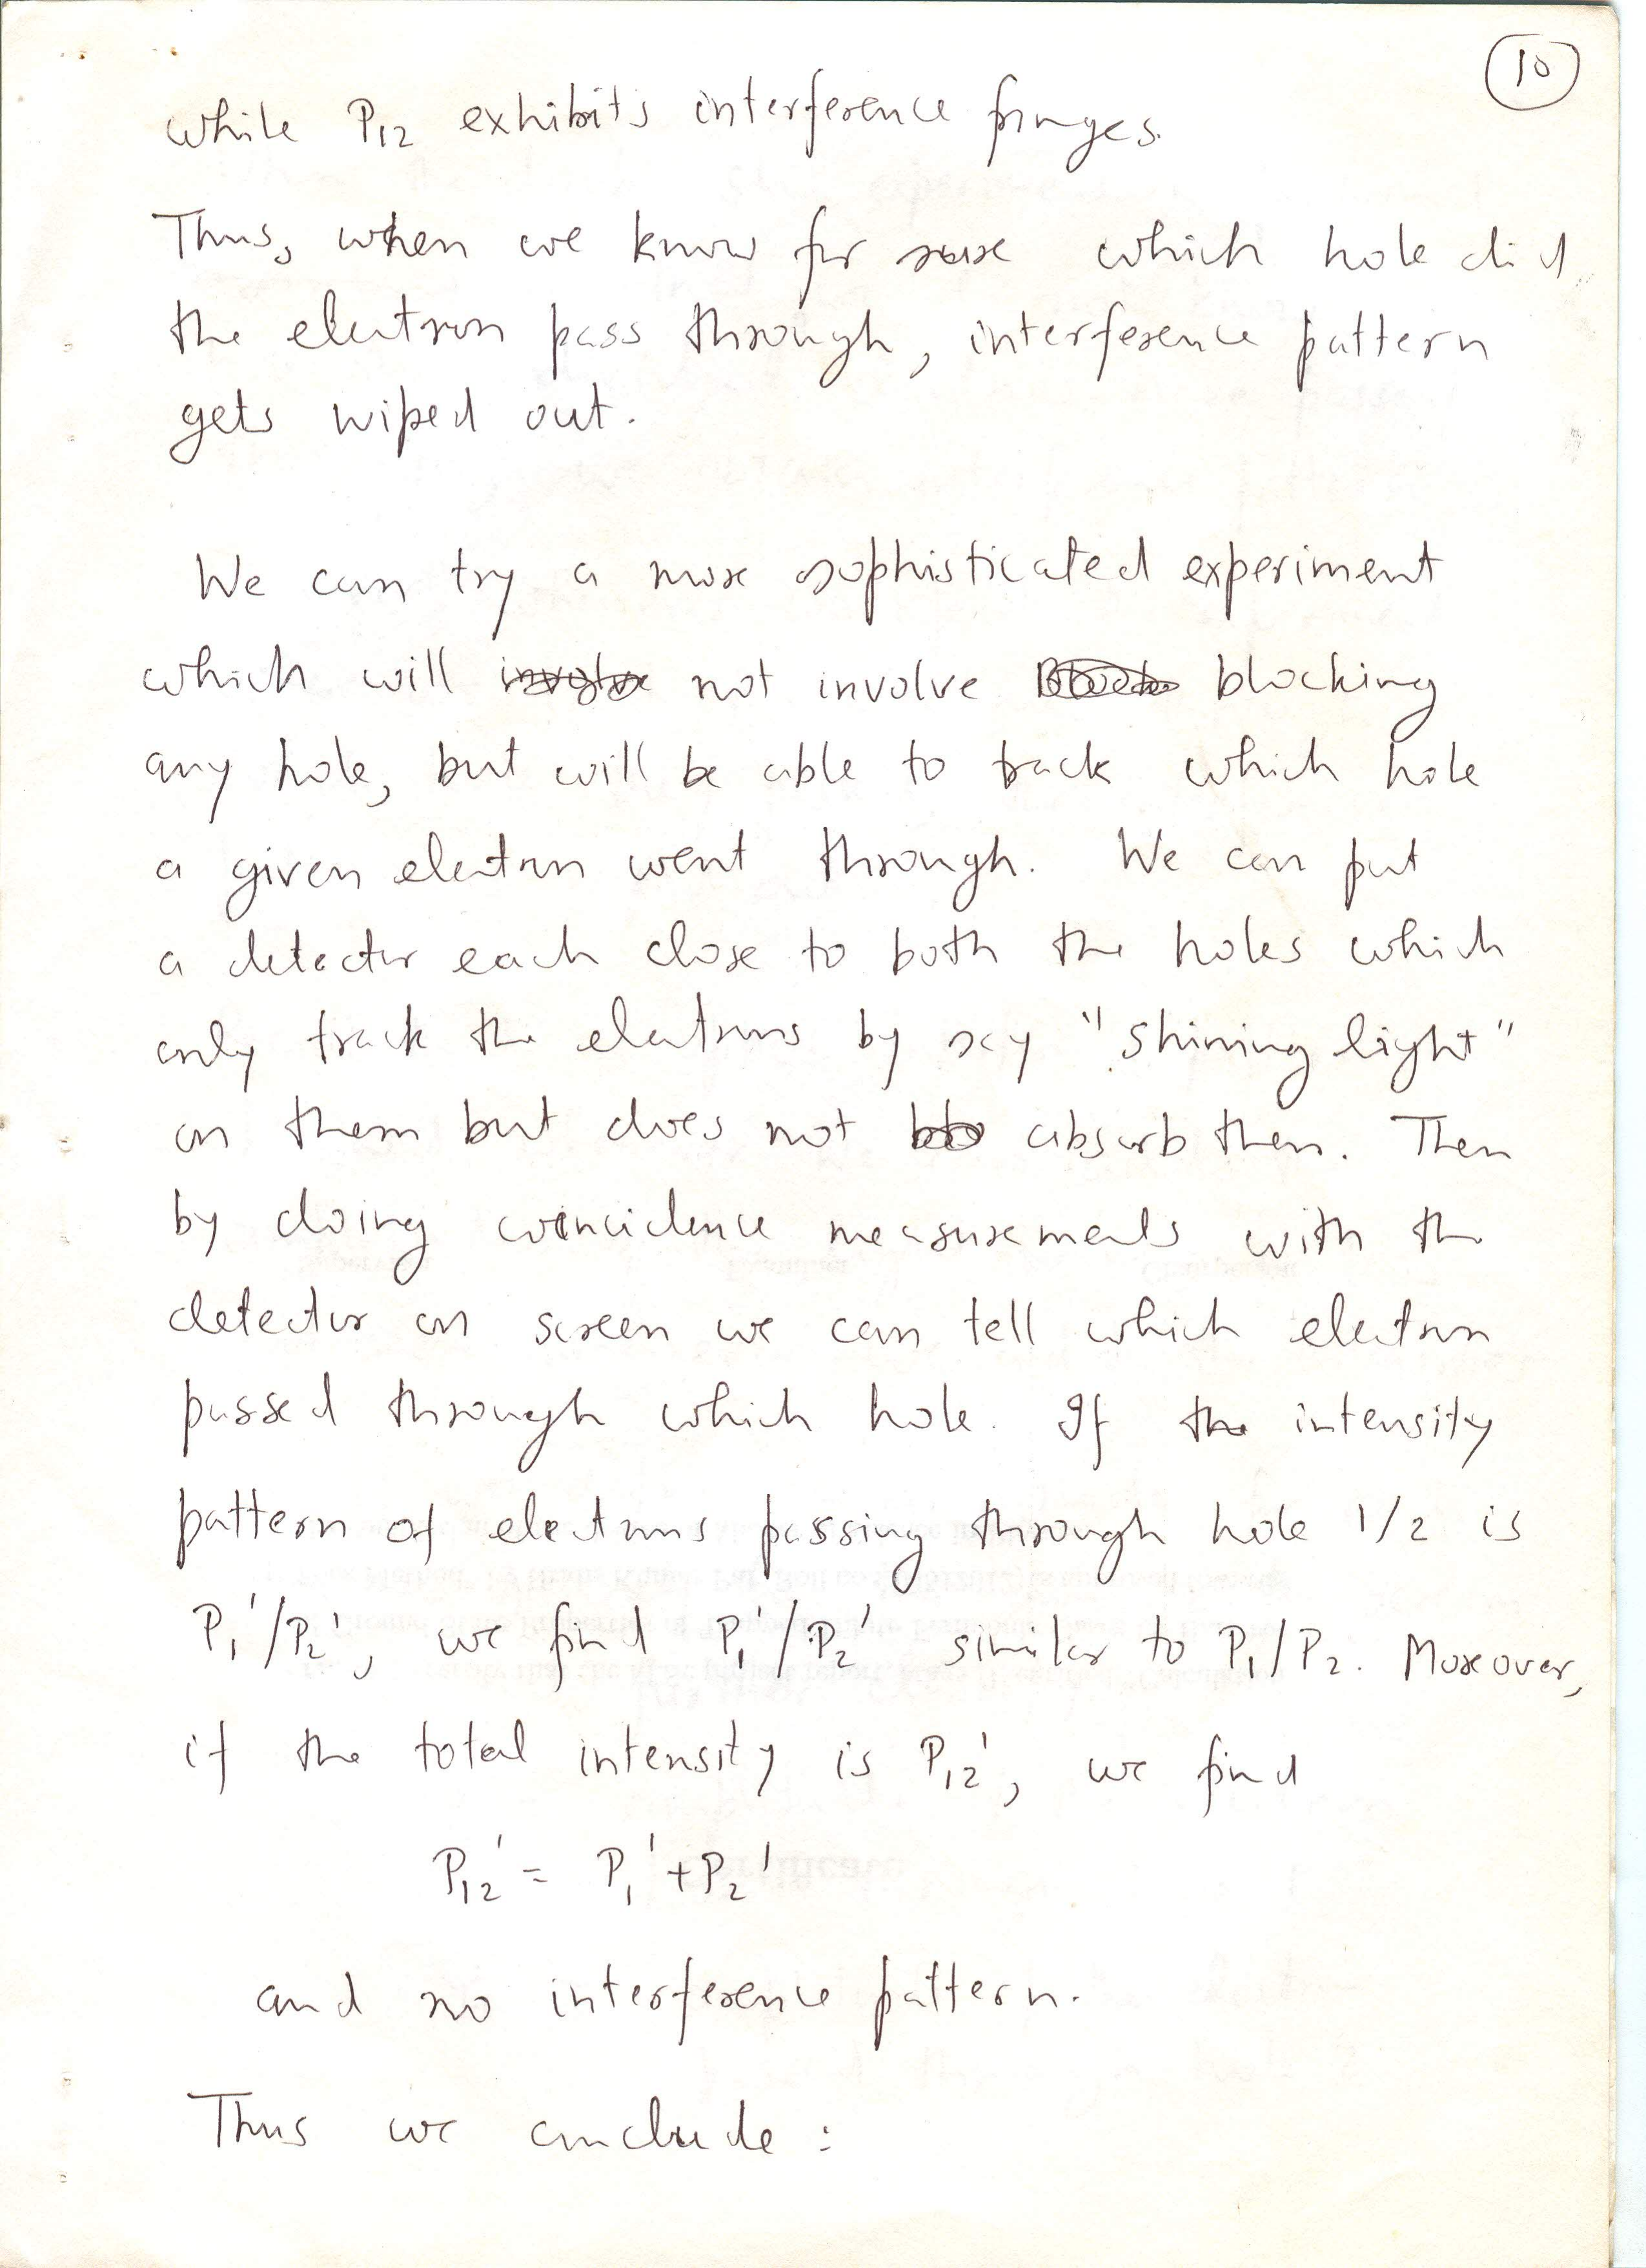 10
while P₁₂ exhibits interference fringes.
Thus, when we know for sure which hole did
the electron pass through, interference pattern
gets wiped out.
We can try a more sophisticated experiment
which will involve not involve blocking
any hole, but will be able to track which hole
a given electron went through. We can put
a detector each close to both the holes which
only track the electrons by say "shining light"
on them but does not absorb them. Then
by doing coincidence measurements with the
detector on screen we can tell which electron
passed through which hole. If the intensity
pattern of electrons passing through hole 1/2 is
P₁'/P₂', we find P₁'/P₂' similar to P₁/P₂. Moreover,
if the total intensity is P₁₂', we find
P₁₂' = P₁' + P₂'
and no interference pattern.
Thus we conclude :